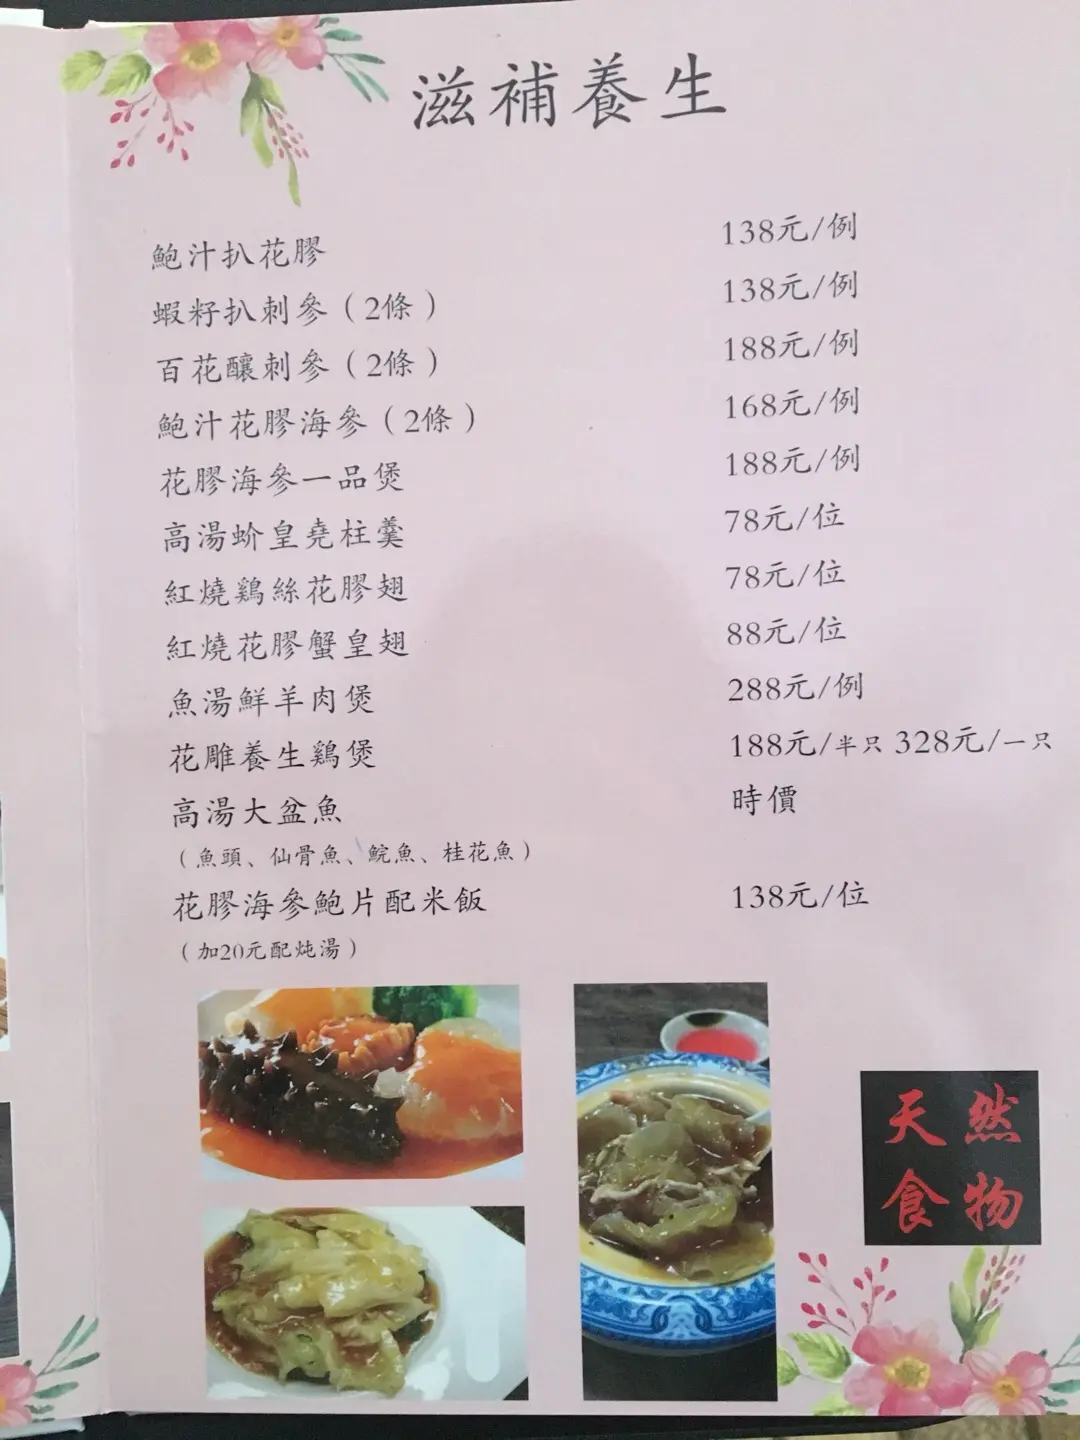 滋補養生
鮑汁扒花膠 138元/例
蝦籽扒刺參（2條） 138元/例
百花釀刺參（2條） 188元/例
鮑汁花膠海參（2條） 168元/例
花膠海參一品煲 188元/例
高湯蚧皇堯柱羹 78元/位
紅燒鷄絲花膠翅 78元/位
紅燒花膠蟹皇翅 88元/位
魚湯鮮羊肉煲 288元/例
花雕養生鷄煲 188元/半只 328元/一只
高湯大盆魚 時價
（魚頭、仙骨魚、鯇魚、桂花魚）
花膠海參鮑片配米飯 138元/位
（加20元配炖湯）
天然
食物